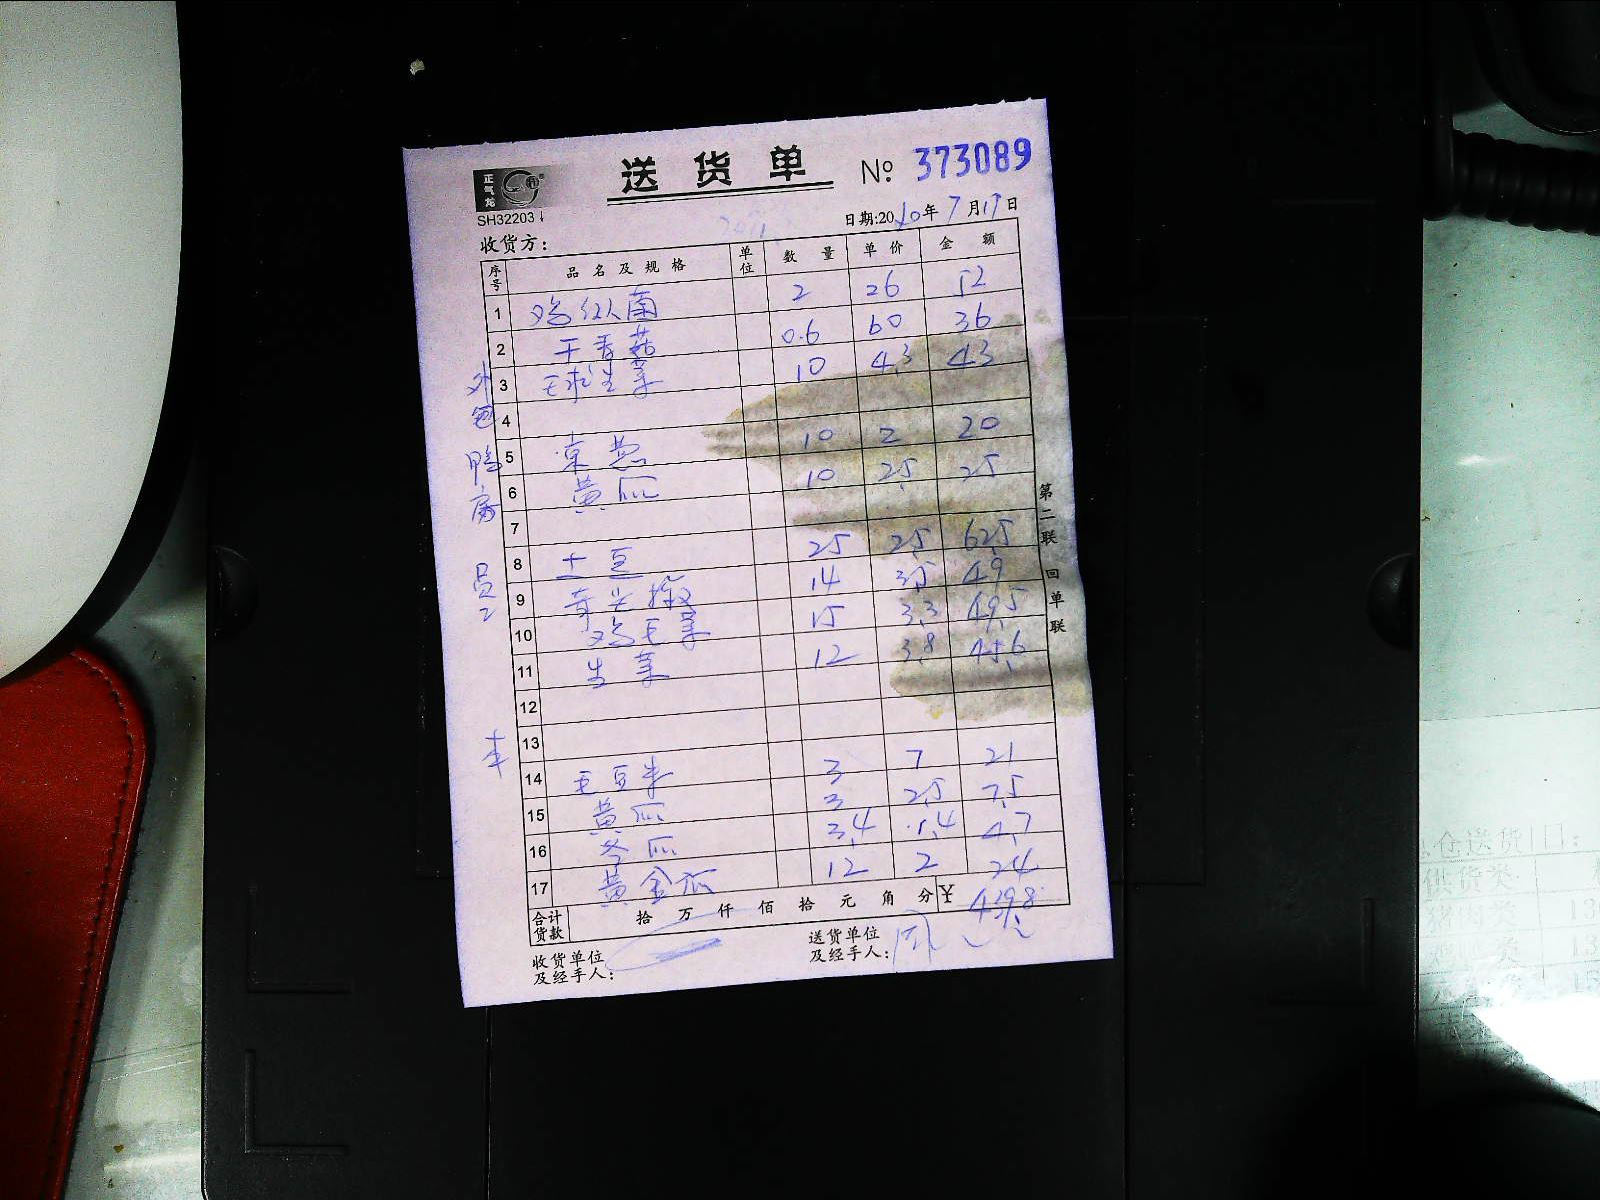 正气龙
SH32203↓
送货单 № 373089
日期:2020年7月17日
收货方:
序号 品名及规格 单位 数量 单价 金额
1 鸡枞菌 2 26 52
2 干香菇 0.6 60 36
3 球生菜 10 4.3 43
4
5 京葱 10 2 20
6 黄瓜 10 2.5 25
7
8 土豆 25 2.5 62.5
9 14 3.5 49
10 鸡毛菜 15 3.3 49.5
11 生菜 12 3.8 45.6
12
13
14 毛豆米 3 7 21
15 黄瓜 3 2.5 7.5
16 冬瓜 3.4 1.4 4.7
17 黄金瓜 12 2 24
合计货款 拾 万 仟 佰 拾 元 角 分 ¥ 439.8
收货单位及经手人:
送货单位及经手人:
外
鸭
房
员工
第二联 回单联
仓送货
供货类
猪肉类